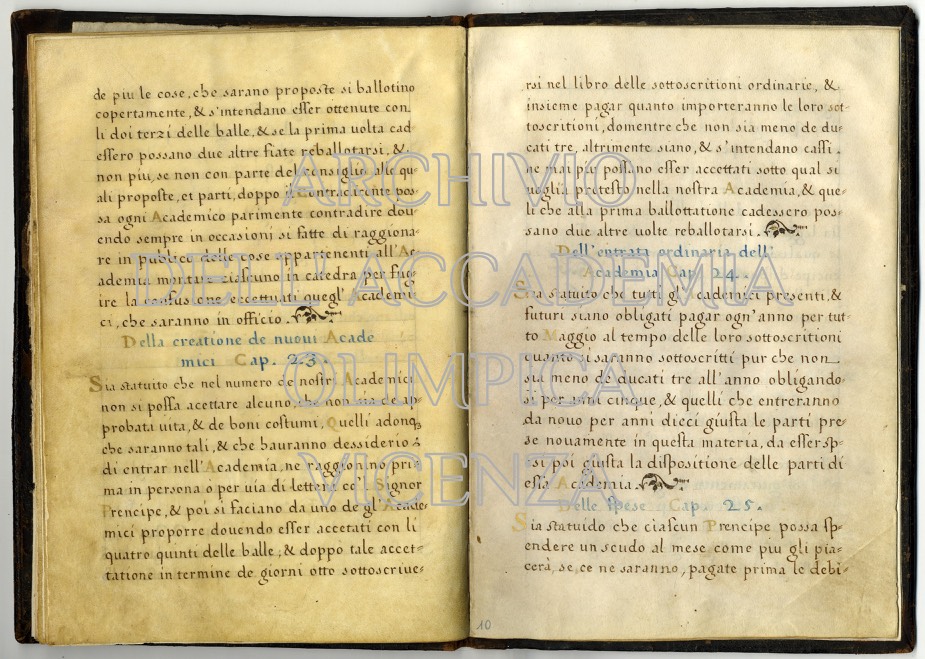 de piu le cose, che sarano proposte si ballotino
copertamente, & s'intendano esser ottenute con
li doi terzi delle balle, & se la prima uolta cad
essero possano due altre fiate reballotarsi. &
non piu, se non con parte del consiglio alle qu-
ali proposte, et parti, doppo il Contracarente pos-
sa ogni Academico parimente contradire dou-
endo sempre in occasioni si fatte di raggiona-
re in publico delle cose appartenenti all'Ac-
ademia montare ciascuno in catedra per fug-
ire la confusione eccettuati quegl'Academi-
ci, che saranno in officio.
Della creatione de nuoui Acade
mici Cap. 23.
Sia statuito che nel numero de nostri Academici
non si possa acettare alcuno, che non sia de ap-
probata uita, & de boni costumi, Quelli adonq3
che saranno tali, & che hauranno dessiderio
di entrar nell'Academia, ne raggionino pri-
ma in persona o per uia di lettere co'l Signor
Prencipe, & poi si faciano da uno de gl'Acade-
mici proporre douendo esser accetati con li
quatro quinti delle balle, & doppo tale accet-
tatione in termine de giorni otto sottoscriue-
rsi nel libro delle sottoscritioni ordinarie, &
insieme pagar quanto importeranno le loro sot-
toscritioni, domentre che non sia meno de du-
cati tre, altrimente siano, & s'intendano cassi.
ne mai piu possano esser accettati sotto qual si
uoglia pretesto nella nostra Academia, & que-
li che alla prima ballottatione cadessero pos-
sano due altre uolte reballotarsi.
Dell'entrata ordinaria dell'
Academia Cap. 24.
Sia statuito che tutti gl'Academici presenti, &
futuri siano obligati pagar ogn'anno per tut-
to Maggio al tempo delle loro sottoscritioni
quanto si saranno sottoscritti pur che non
sia meno de ducati tre all'anno obligando-
si per anni cinque, & quelli che entreranno
da nouo per anni dieci giusta le parti pre-
se nouamente in questa materia, da esser sp-
esi poi giusta la dispositione delle parti di
essa Academia.
Delle spese Cap. 25.
Sia statuido che ciascun Prencipe possa sp-
endere un scudo al mese come piu gli pia-
cerà, se, ce ne saranno, pagate prima le debi-
10
ARCHIVIO
DELL'ACCADEMIA
OLIMPICA
VICENZA